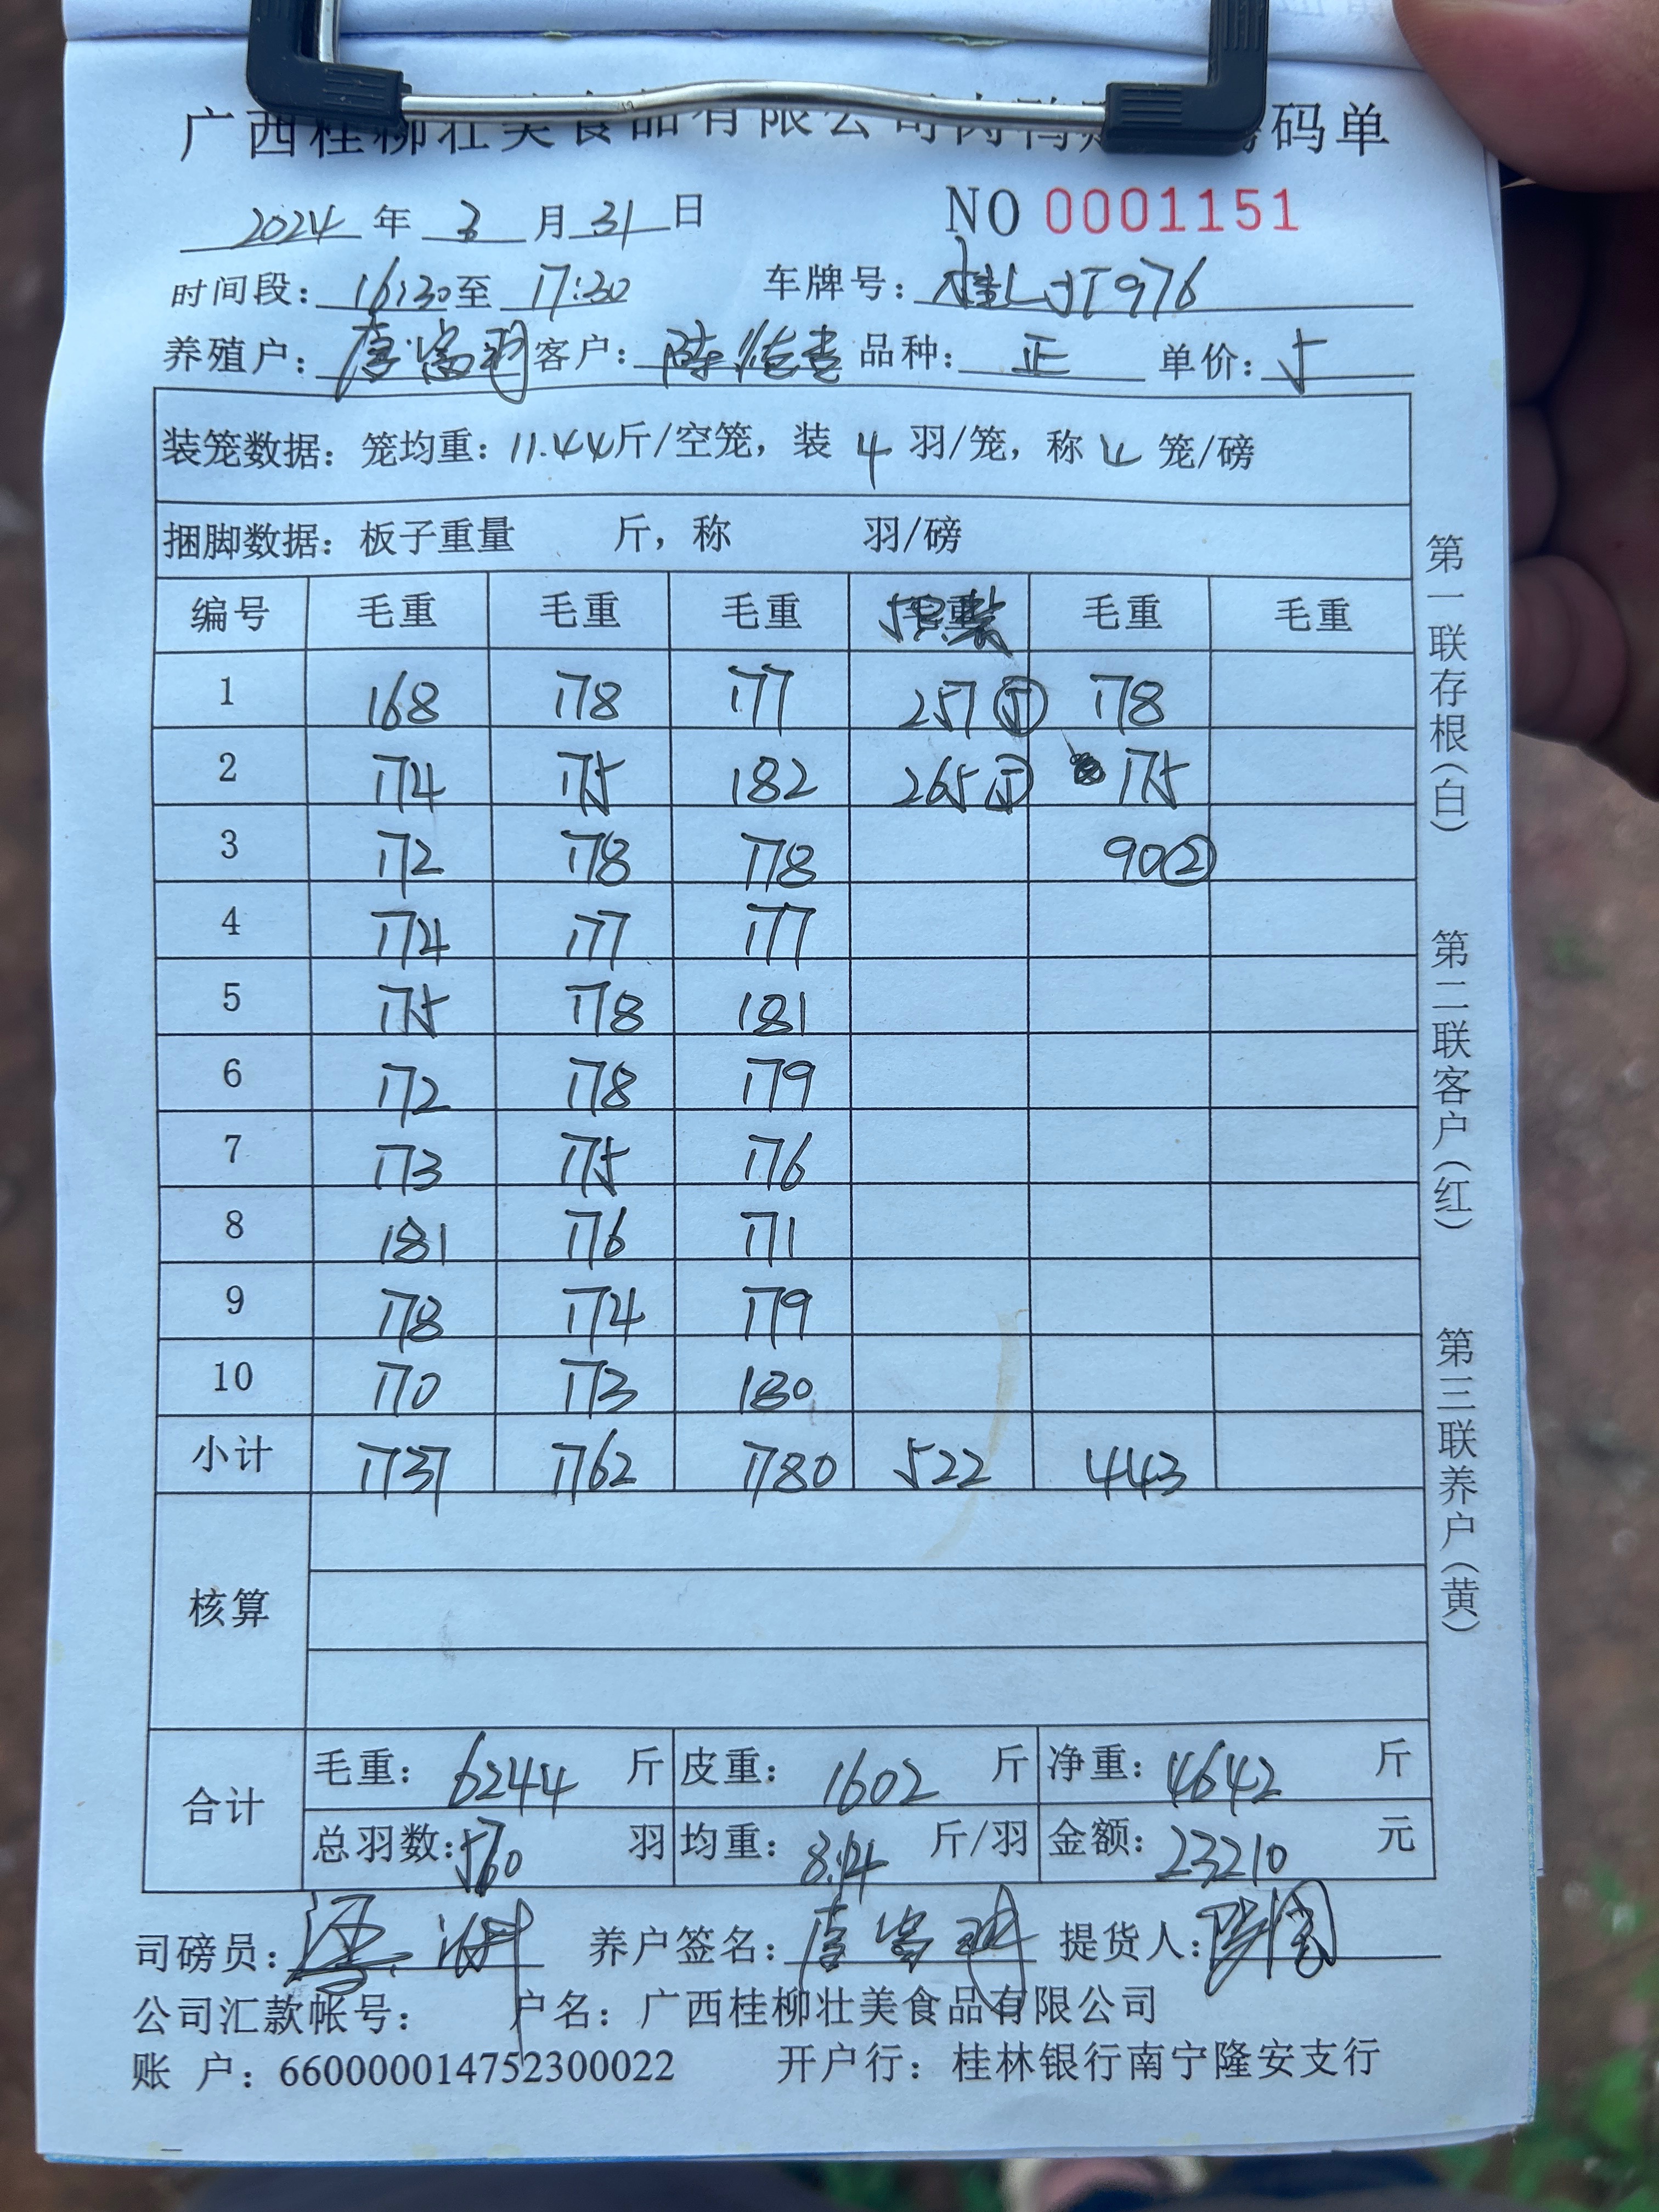 广西桂柳壮美食品有限公司肉鸭 码单
2024 年 3 月 31 日 NO 0001151
时间段: 16:30 至 17:30 车牌号: 桂LJT976
养殖户: 唐富羽 客户: 陈 品种: 正 单价: 5
装笼数据: 笼均重: 11.44 斤/空笼, 装 4 羽/笼, 称 4 笼/磅
捆脚数据: 板子重量 斤, 称 羽/磅
编号 毛重 毛重 毛重 毛重 毛重
1 168 178 177 257⑤ 178
2 174 175 182 265⑤ 175
3 172 178 178 90②
4 174 177 177
5 175 178 181
6 172 178 179
7 173 175 176
8 181 176 171
9 178 174 179
10 170 173 180
小计 1737 1762 1780 522 443
核算
合计
毛重: 6244 斤 皮重: 1602 斤 净重: 4642 斤
总羽数: 570 羽 均重: 8.14 斤/羽 金额: 23210 元
司磅员: 养户签名: 唐富 提货人:
公司汇款帐号: 户名: 广西桂柳壮美食品有限公司
账 户: 660000014752300022 开户行: 桂林银行南宁隆安支行
第一联存根(白) 第二联客户(红) 第三联养户(黄)